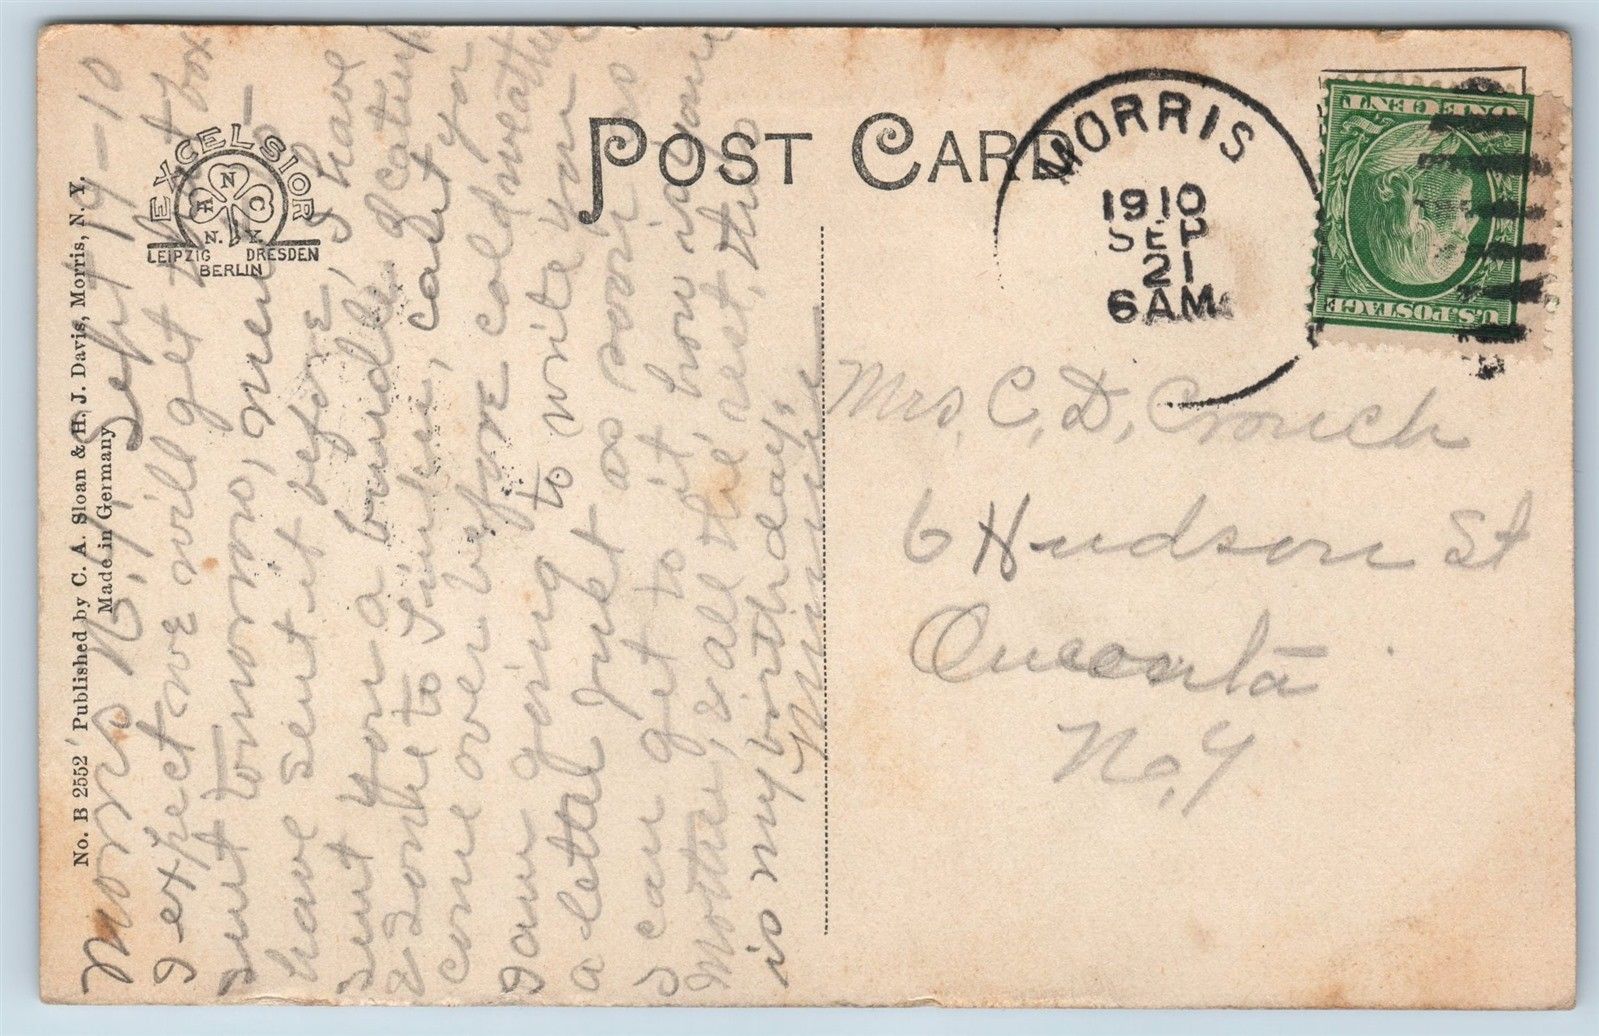 POST CARD
EXCELSIOR
A N C
N. Y.
LEIPZIG DRESDEN
BERLIN
No. B 2552 Published by C. A. Sloan & H. J. Davis, Morris, N. Y.
Made in Germany
MORRIS
1910
SEP
21
6AM
U.S. POSTAGE
ONE CENT
Morris N.Y. Sept 19-10
I expect we will get that box
sent tomorrow,
have sent it before, I have
sent you a bundle
come to, can't you
come over before cold weather
I am going to write you
a letter just as soon as
I can get to it, how is your
Mother, & all the rest, this
is my birthday,
Minnie
Mrs, C, D, Crouch
6 Hudson St
Oneonta
N, Y